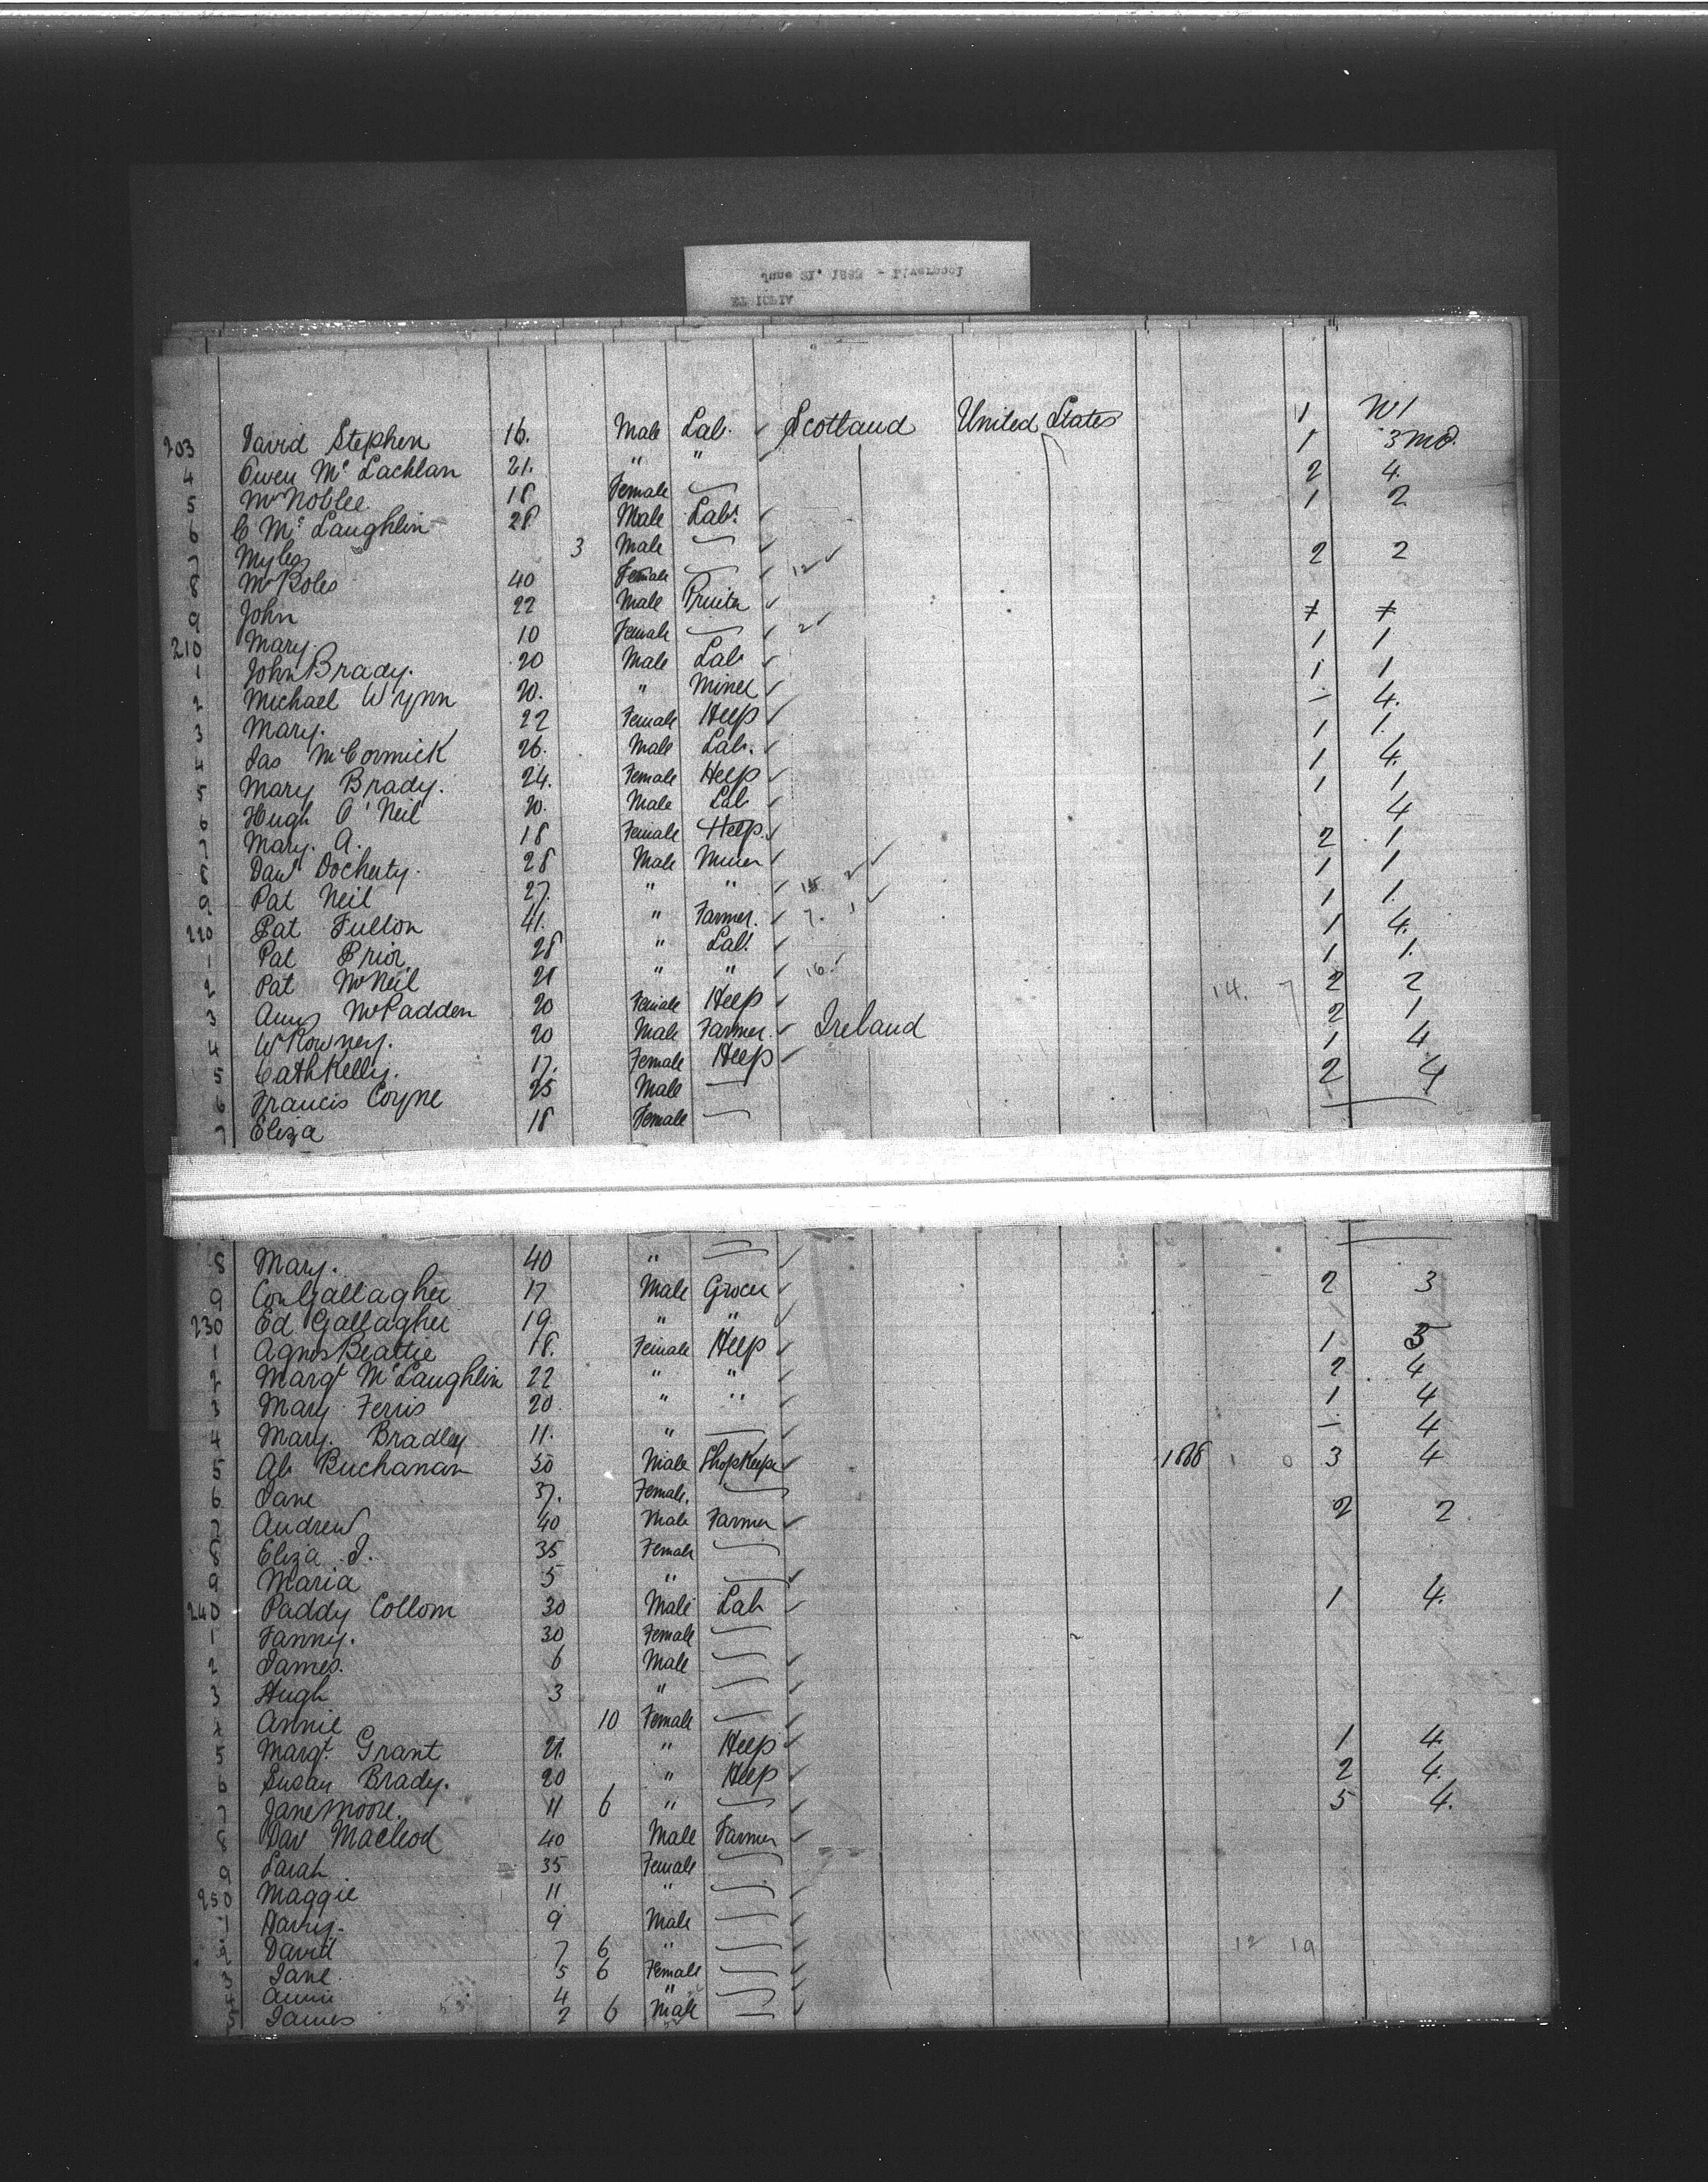 June 21. 1882 - Liverpool
203 David Stephen 16. Male Lab. ✓ Scotland United States 1 W1
4 Owen Mc Lachlan 21. " " 1 3 mo.
5 Mr Noblee 18 Female 2 4.
6 C Mc Laughlin 28 Male Lab. ✓ 1 2
7 Myles 3 Male ✓
8 Mr Boles 40 Female ✓ 12 ✓ 2 2
9 John 22 Male ✓
210 Mary 10 Female ✓ 2 ✓
1 John Brady. 20 Male Lab ✓ 1 1
2 Michael Wynn 20. " Miner ✓ 1 1
3 Mary. 22 Female Help ✓ - 4.
4 Jas McCormick 26. Male Lab. ✓ 1 1.
5 Mary Brady. 24. Female Help ✓ 1 4.
6 Hugh O'Neil 20. Male Lab ✓ 1 1
7 Mary. A. 18 Female Help. ✓ 4
8 Dav Docherty. 28 Male Miner ✓ 2 1
9 Pat Neil 27. " " ✓ 15 1 1
220 Pat Fulton 41. " Farmer. ✓ 7. 1 1.
1 Pat Prior 28 " Lab. ✓ 1 4.
2 Pat McNeil 21 " " ✓ 16. 1 1.
3 Ann McPadden 20 Female Help ✓ 14. 7 2 2
4 W Rowney. 20 Male Farmer. ✓ Ireland 2 1
5 Cath Kelly. 17. Female Help ✓ 1 4
6 Francis Coyne 25 Male 2 4
7 Eliza 18 Female
8 Mary. 40 " ✓
9 Con Gallagher 17 Male Grocer ✓ 2 3
230 Ed Gallagher 19. " " ✓
1 Agnes Beattie 18. Female Help ✓ 1 5
2 Margt McLaughlin 22 " " ✓ 2 4
3 Mary Ferris 20 " " ✓ 1 4
4 Mary. Bradley 11. " ✓ - 4
5 Al. Buchanan 30 Male Shopkeeper ✓ 1888 1 0 3 4
6 Jane 37. Female.
7 Andrew 40 Male Farmer ✓ 2 2
8 Eliza J. 35 Female
9 Maria 5 " ✓
240 Paddy Collom 30 Male Lab ✓ 1 4.
1 Fanny. 30 Female
2 James. 6 Male ✓
3 Hugh 3 " ✓
4 Annie 10 Female ✓
5 Margt. Grant 21. " Help ✓ 1 4.
6 Susan Brady. 20 " Help ✓ 2 4.
7 Jane Moore. 11 6 " ✓ 5 4.
8 Dav Macleod 40 Male Farmer ✓
9 Sarah 35 Female
250 Maggie 11 " ✓
1 Harry. 9 Male ✓
2 David 7 6 " ✓ 12 19
3 Jane. 5 6 Female ✓
4 Annie 4 " ✓
5 James 2 6 Male ✓